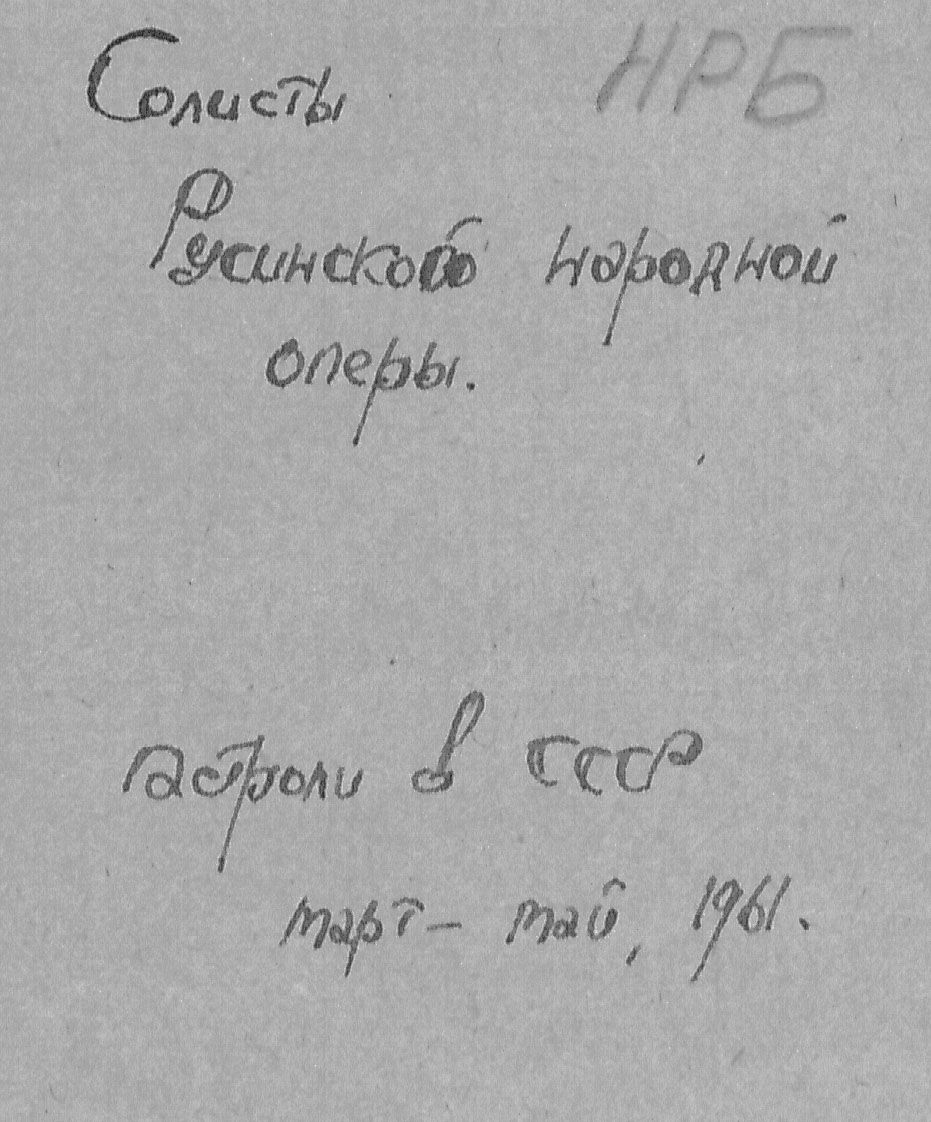 Солисты НРБ
Русинской народной
оперы.
гастроли в СССР
март – май, 1961.